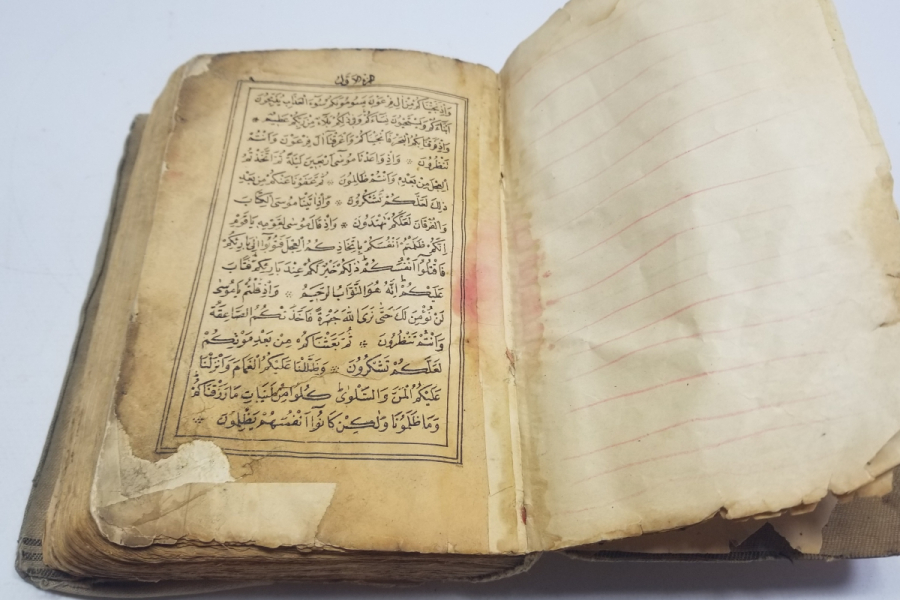 الجزء الاول
وَاِذْ نَجَّيْنَاكُمْ مِنْ اٰلِ فِرْعَوْنَ يَسُومُونَكُمْ سُوٓءَ الْعَذَابِ يُذَبِّحُونَ
اَبْنَآءَكُمْ وَيَسْتَحْيُونَ نِسَآءَكُمْ وَفِى ذٰلِكُمْ بَلَآءٌ مِنْ رَبِّكُمْ عَظِيمٌ
وَاِذْ فَرَقْنَا بِكُمُ الْبَحْرَ فَاَنْجَيْنَاكُمْ وَاَغْرَقْنَا اٰلَ فِرْعَوْنَ وَاَنْتُمْ
تَنْظُرُونَ وَاِذْ وَاعَدْنَا مُوسٰى اَرْبَعِينَ لَيْلَةً ثُمَّ اتَّخَذْتُمُ
الْعِجْلَ مِنْ بَعْدِهِ وَاَنْتُمْ ظَالِمُونَ ثُمَّ عَفَوْنَا عَنْكُمْ مِنْ بَعْدِ
ذٰلِكَ لَعَلَّكُمْ تَشْكُرُونَ وَاِذْ اٰتَيْنَا مُوسَى الْكِتَابَ
وَالْفُرْقَانَ لَعَلَّكُمْ تَهْتَدُونَ وَاِذْ قَالَ مُوسٰى لِقَوْمِهِ يَا قَوْمِ
اِنَّكُمْ ظَلَمْتُمْ اَنْفُسَكُمْ بِاتِّخَاذِكُمُ الْعِجْلَ فَتُوبُوٓا اِلٰى بَارِئِكُمْ
فَاقْتُلُوٓا اَنْفُسَكُمْ ذٰلِكُمْ خَيْرٌ لَكُمْ عِنْدَ بَارِئِكُمْ فَتَابَ
عَلَيْكُمْ اِنَّهُ هُوَ التَّوَّابُ الرَّحِيمُ وَاِذْ قُلْتُمْ يَا مُوسٰى
لَنْ نُؤْمِنَ لَكَ حَتّٰى نَرَى اللّٰهَ جَهْرَةً فَاَخَذَتْكُمُ الصَّاعِقَةُ
وَاَنْتُمْ تَنْظُرُونَ ثُمَّ بَعَثْنَاكُمْ مِنْ بَعْدِ مَوْتِكُمْ
لَعَلَّكُمْ تَشْكُرُونَ وَظَلَّلْنَا عَلَيْكُمُ الْغَمَامَ وَاَنْزَلْنَا
عَلَيْكُمُ الْمَنَّ وَالسَّلْوٰى كُلُوا مِنْ طَيِّبَاتِ مَا رَزَقْنَاكُمْ
وَمَا ظَلَمُونَا وَلٰكِنْ كَانُوٓا اَنْفُسَهُمْ يَظْلِمُونَ